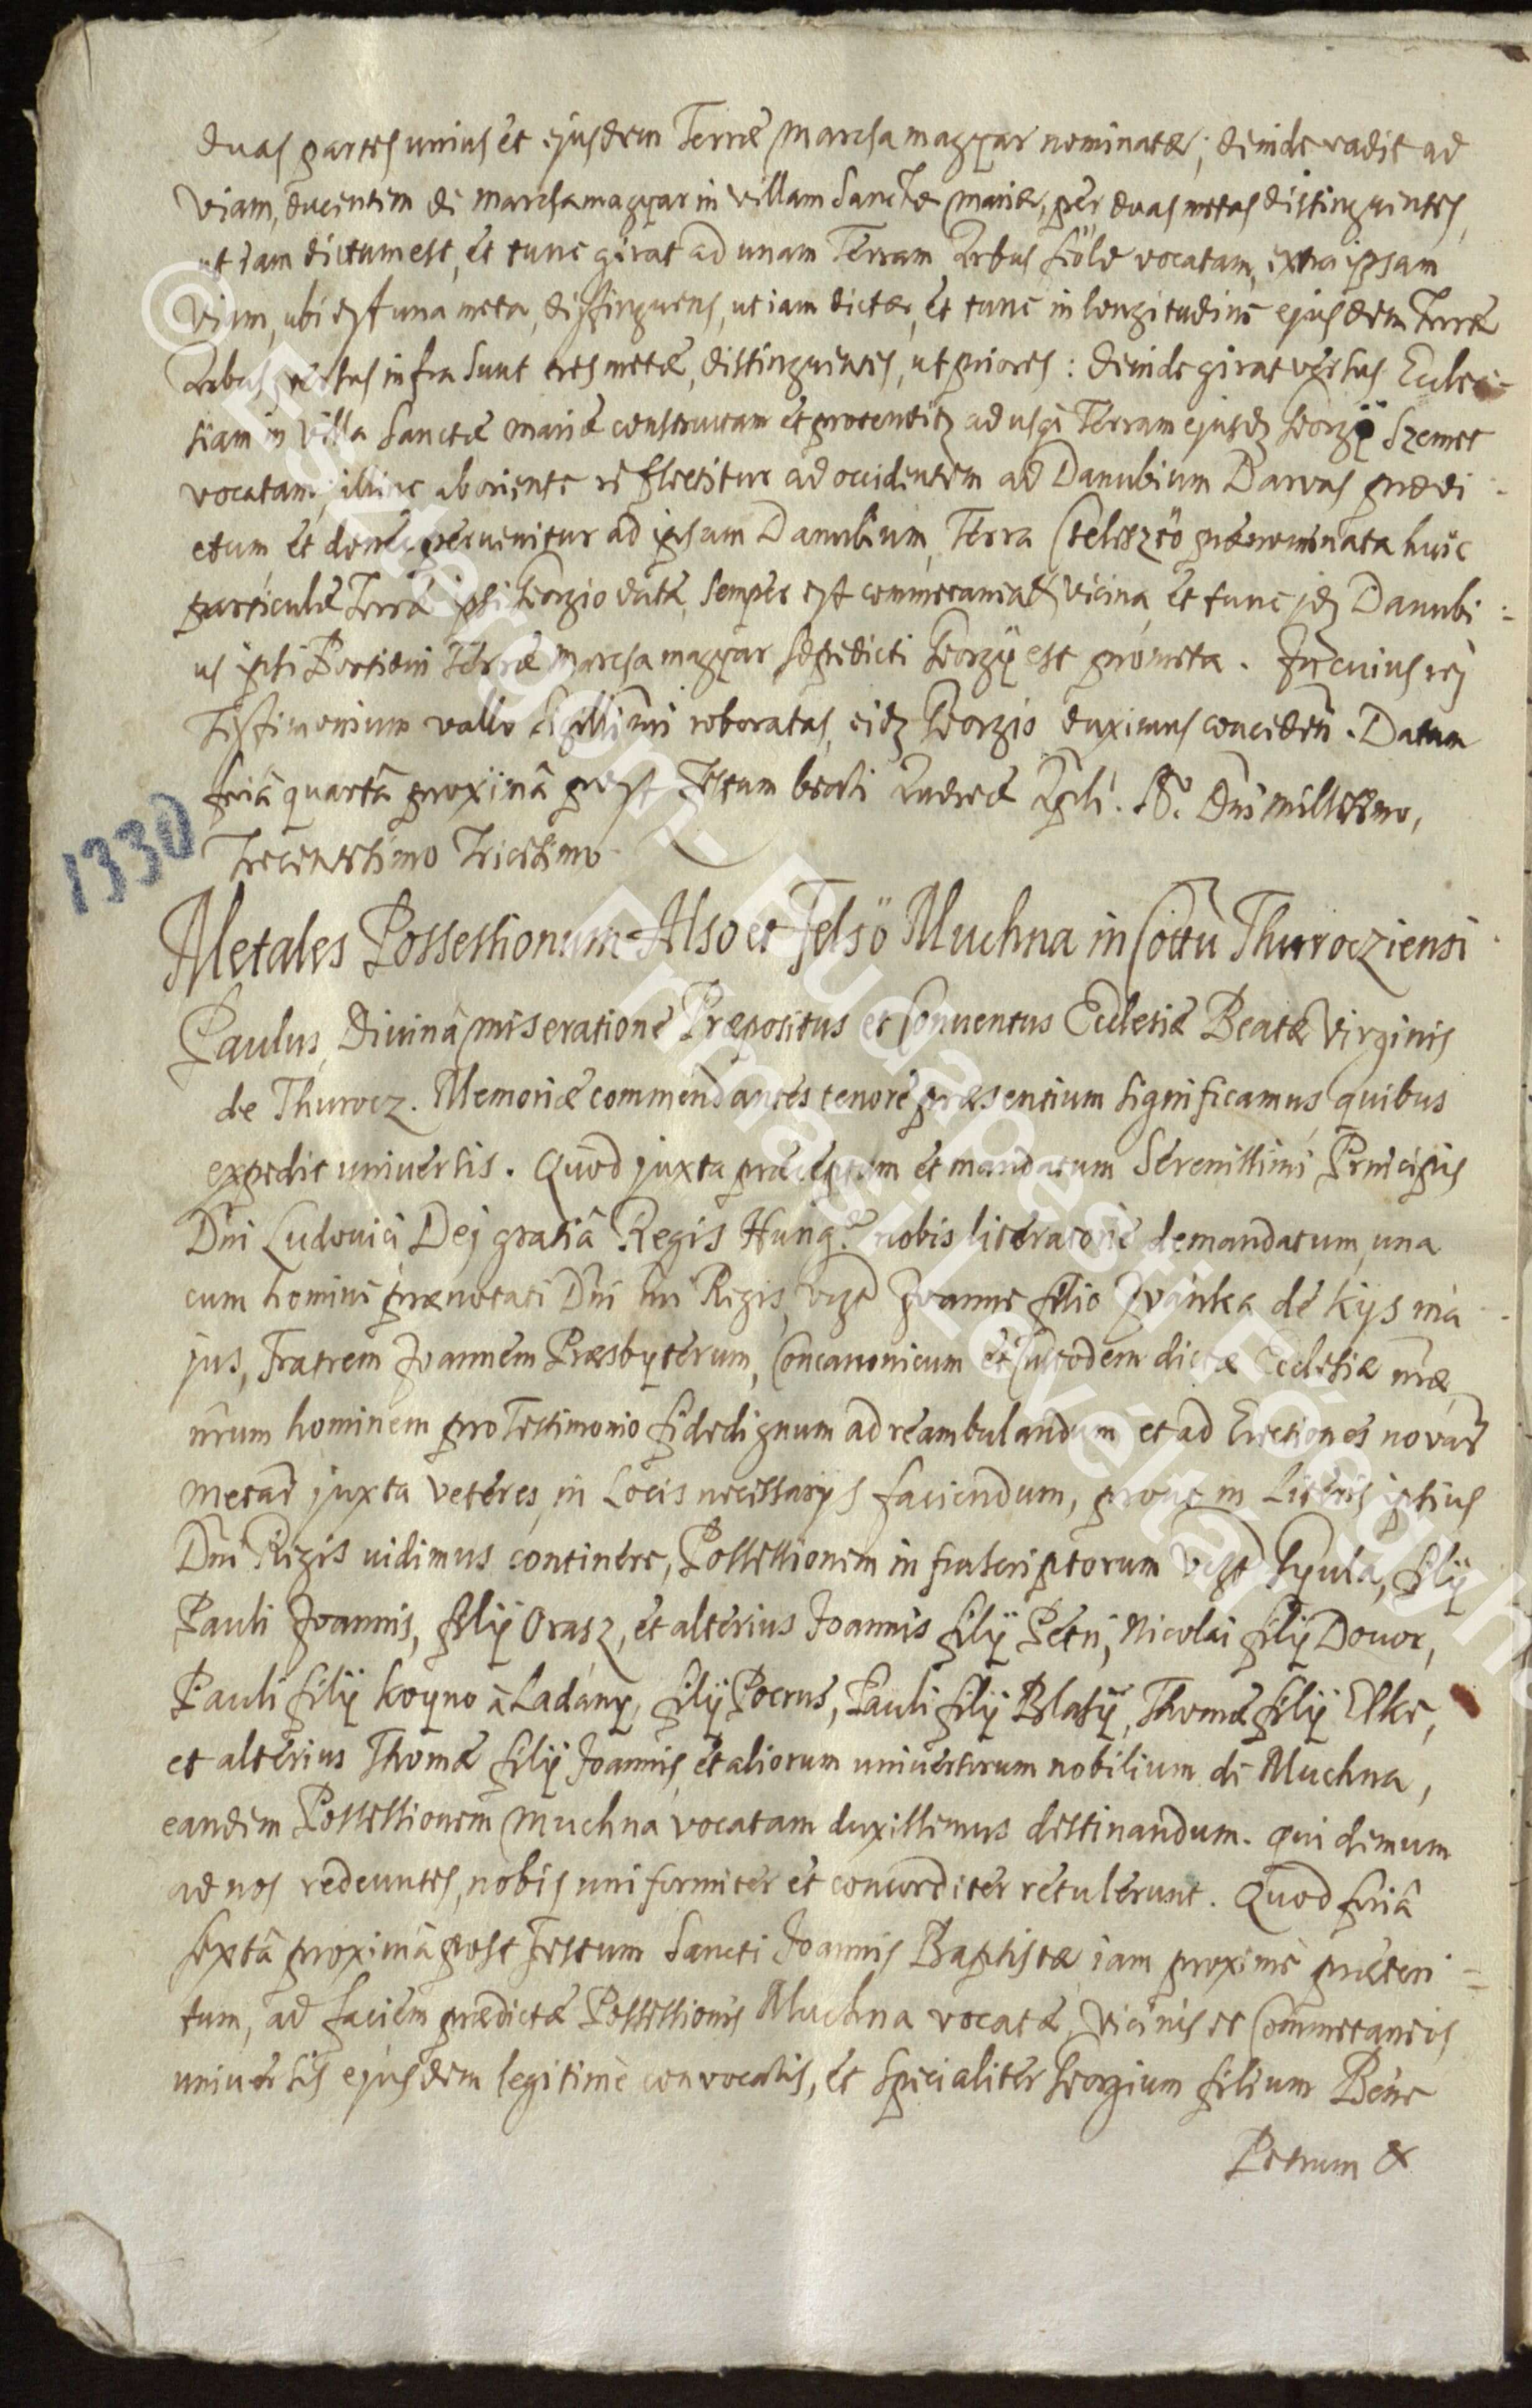 duas partes unius et ejusdem Terræ Marcsamagyar nominatæ; deinde vadit ad
viam, ducentem de Marcsamagyar in villam Sanctæ Mariæ, per duas metas distinguentes,
ut iam dictum est, et tunc girat ad unam Terram Arbus föld vocatam, extra ipsam
viam, ubi est una meta, distinguens, ut iam dictæ, et tunc in longitudine ejusdem Terræ
Arbus versus infra sunt tres metæ, distinguentes, ut priores: deinde girat versus Eccle-
siam in villa Sanctæ Mariæ constructam et protenditz ad usqz Terram ejusdz Georgÿ Szemet
vocatam, illinc ab oriente reflectitur ad occidentem ad Danubium Darvas prædi-
ctum, et donec pervenitur ad ipsum Danubium, Terra prænominata huic
particulæ Terræ ipsi Georgio datæ, semper est commetanea et vicina, et tunc idz Danubi:
us ipsi Portioni Terræ Marcsamagyar sæpedicti Georgÿ est pro meta. In cuius rej
Testimonium vallo sigilli nri roboratas, eidz Georgio duximus conceden. Datum
feriâ quartâ proximâ post Festum beati Andreæ Apli. Ao. Dni Millesimo,
Trecentesimo Tricesimo
1330
Metales Possessionum Also et Felsö Muchna in Cottu Thurocziensi
Paulus, Divinâ miseratione Præpositus et Conventus Ecclesiæ Beatæ Virginis
de Thurocz. Memoriæ commendantes tenore præsentium significamus, quibus
expedit universis. Quod juxta præceptum et mandatum Serenissimi Principis
Dni Ludovici Dej gratiâ Regis Hung. nobis literatorie demandatum, una
cum homine prænotati Dni nri Regis, vzt Joanne filio Ivánka de Kys ma
jus, Fratrem Joannem Præsbyterum, Concanonicum et Custodem dictæ Ecclesiæ nræ,
nrum hominem pro Testimonio fidedignum ad reambulandum et ad Erectiones novar
metar juxta veteres, in Locis necessarys faciendum, prout in Literis ipsius
Dni Regis vidimus continere, Possessionem infrascriptorum vzt Gyula, filÿ
Pauli Joannis, filÿ Orasz, et alterius Joannis filÿ Petri, Nicolai filÿ Donor,
Pauli filÿ Koyno â Ladány, filÿ Pocrus, Pauli filÿ Blasÿ, Thomæ filÿ Elke,
et alterius Thomæ filÿ Joannis, et aliorum universorum nobilium de Muchna,
eandem Possessionem Muchna vocatam duxissemus destinandum. Qui demum
ad nos redeuntes, nobis uniformiter et concorditer retulerunt. Quod feriâ
sextâ proximâ post Festum Sancti Joannis Baptistæ iam proxime præteri=
tum, ad faciem prædictæ Possessionis Muchna vocatæ, vicinis et Commetaneis
universis ejusdem legitime convocatis, et specialiter Georgium filium Bene
Petrum &
© Esztergom-Budapesti Főegyhá
Prímási Levéltár